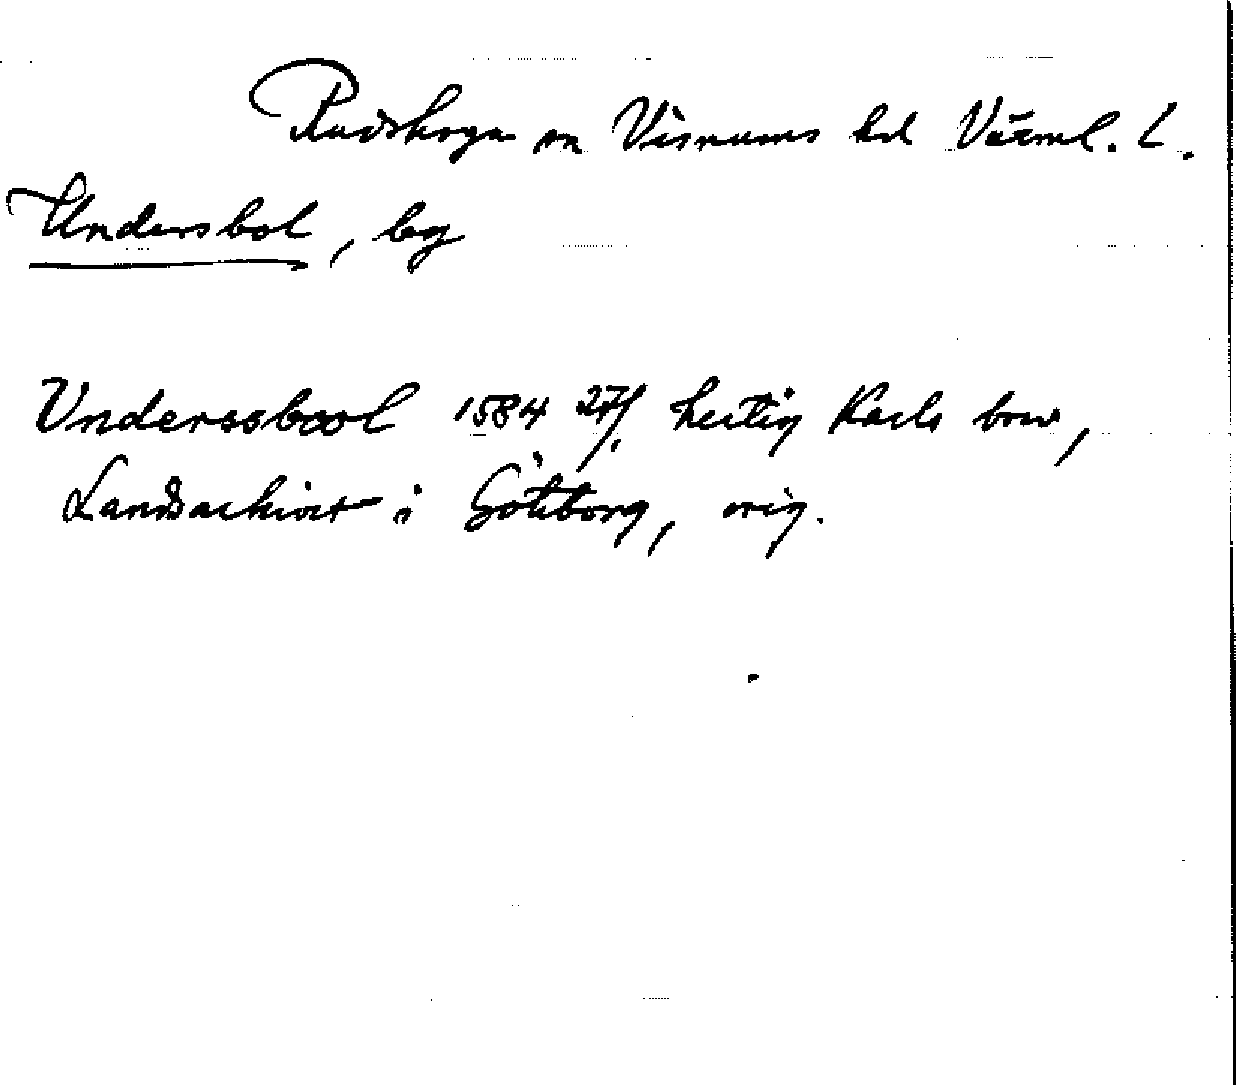 Rudskoga sn Visnums hd Värml. l.
Undersbol, by
Undersbool 1584 27/1 hertig Karls brev,
Landsarkivet i Göteborg, orig.